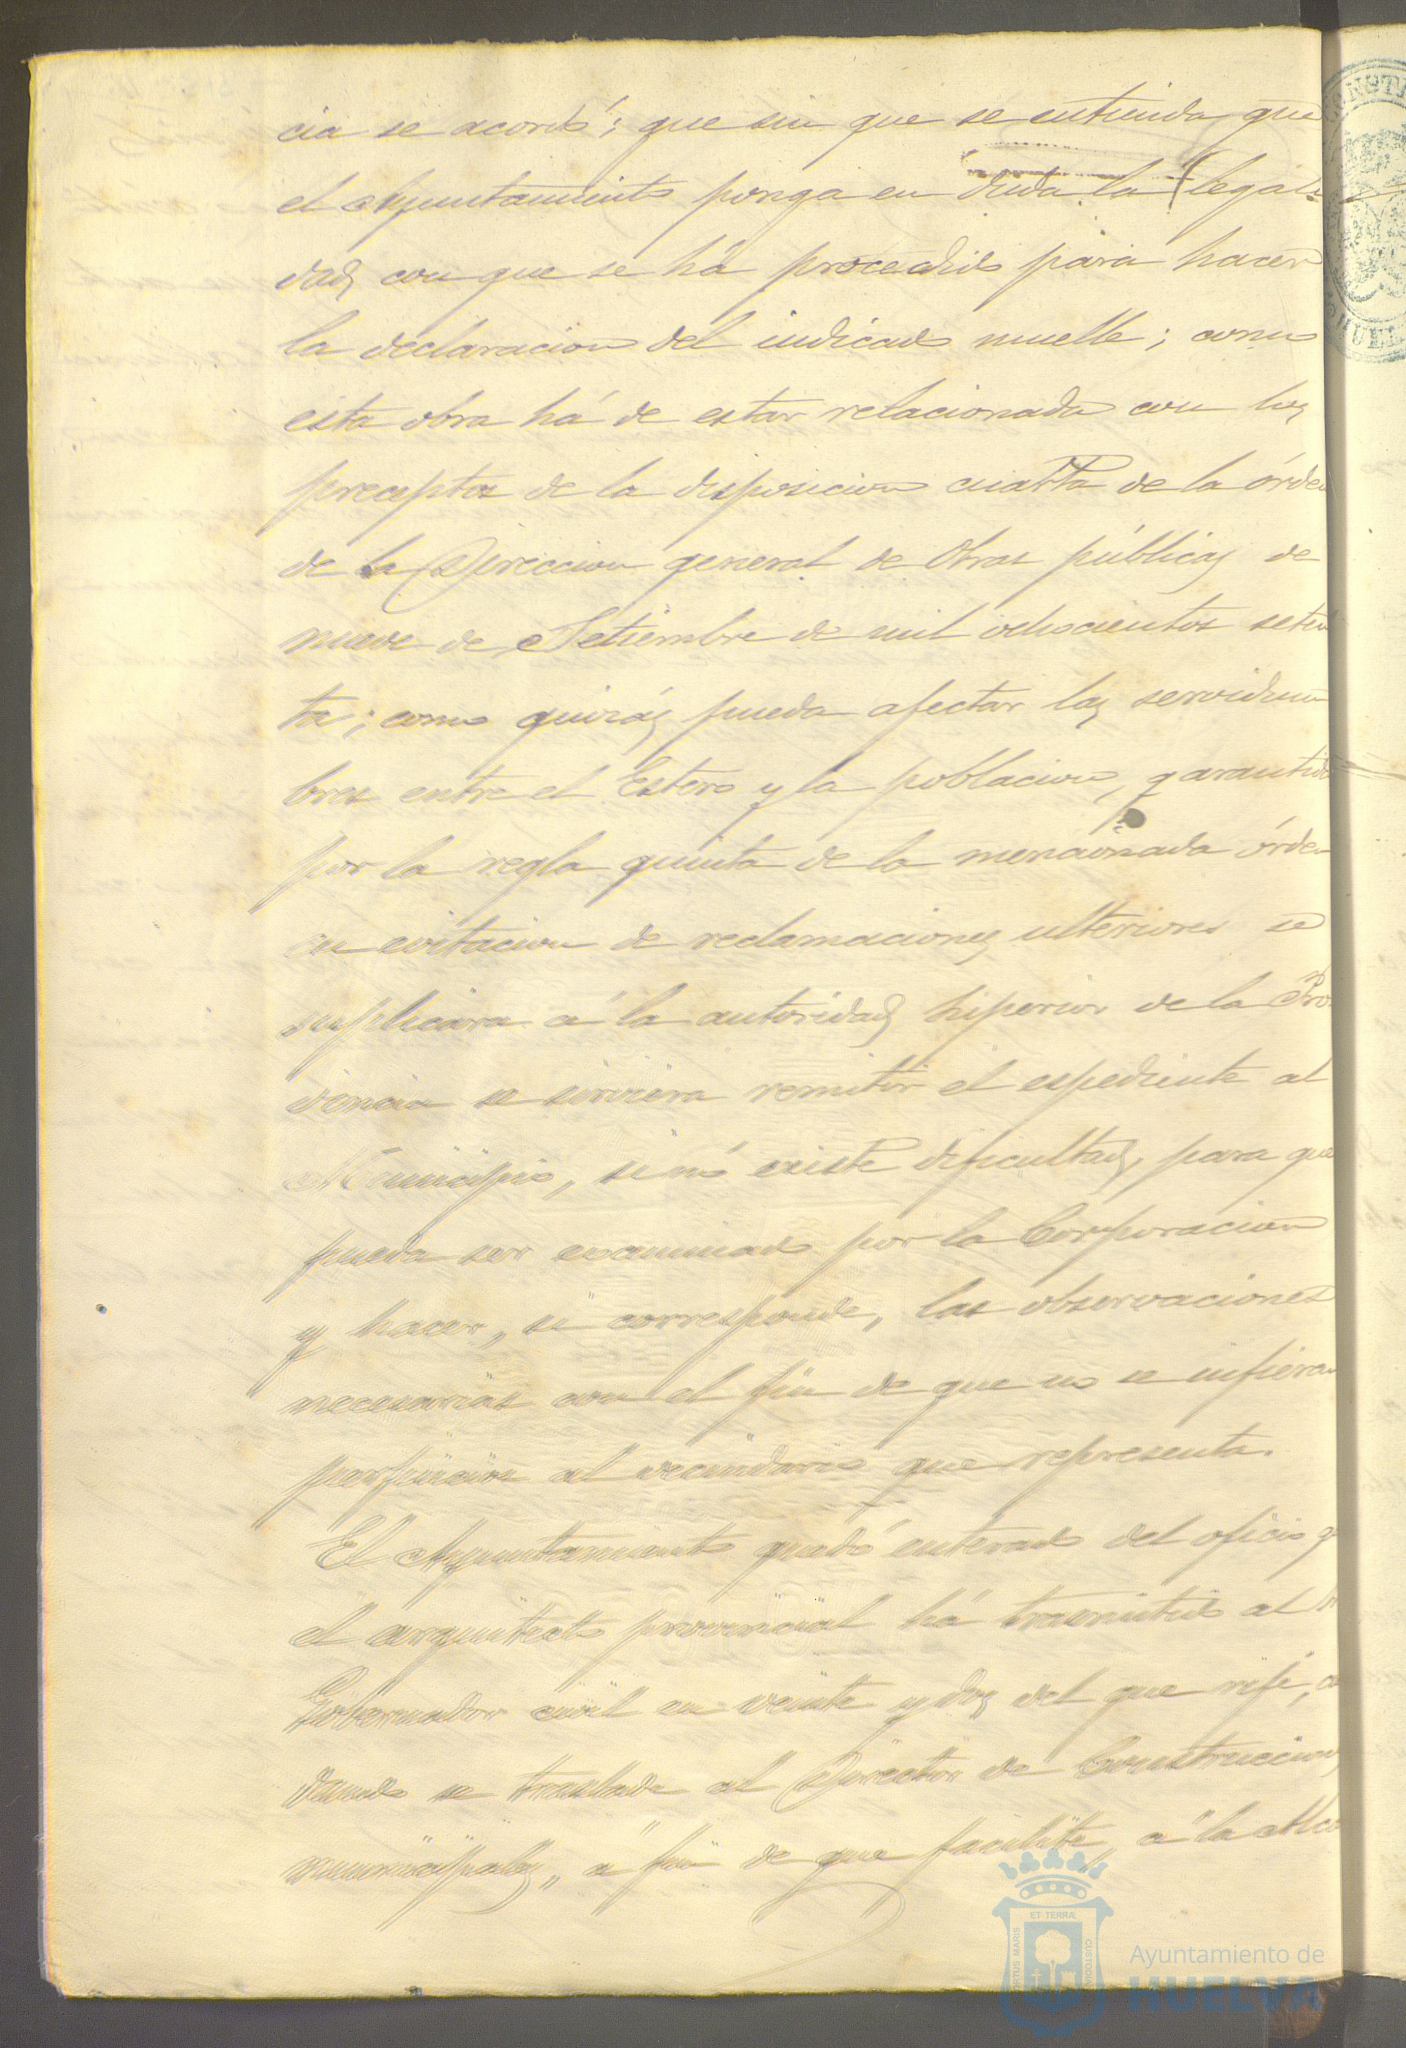 cia se acordó; que sin que se entienda que
el Ayuntamiento ponga en duda la legali-
dad con que se há procedido para hacer
la declaracion del indicado muelle; como
esta obra há de estar relacionada con los
preceptos de la disposicion cuarta de la órden
de la Direccion general de Obras públicas de
nueve de Setiembre de mil ochocientos seten
ta; como quizás pueda afectar las servidum
bres entre el Estero y la poblacion, garantida
por la regla quinta de la mencionada órden
en evitacion de reclamaciones ulteriores se
suplicára á la autoridad superior de la Pro-
vincia se sirviera remitir el espediente al
Municipio, si nó existe dificultad, para que
pueda ser examinado por la Corporacion
y hacer, si corresponde, las observaciones
necesarias con el fin de que no se infieran
perjuicios al vecindario que representa.
El Ayuntamiento quedó enterado del oficio q
el arquitecto provincial há trasmitido al
Gobernador civil en veinte y dos del que rije,
dando se traslade al Director de Construcciones
municipales, á fin de que facilite, á la Alca
Ayuntamiento de
HUELVA